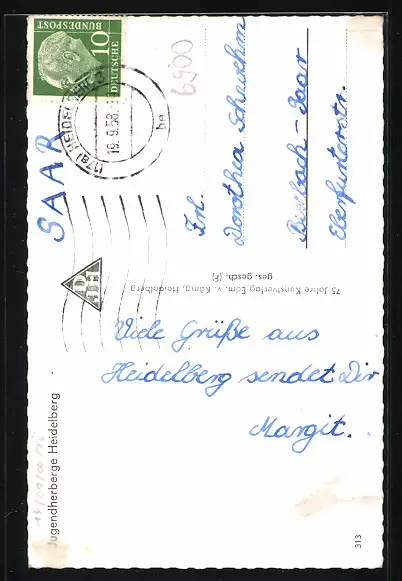 DEUTSCHE
BUNDESPOST
10
(17a) HEIDELBERG
19.9.58
6900
SAAR
Frl.
Dorothea
Bexbach-Saar
75 Jahre Kunstverlag Edm. v. König, Heidelberg
ges. gesch. (F)
Viele Grüße aus
Heidelberg sendet Dir
Margit.
Jugendherberge Heidelberg
313